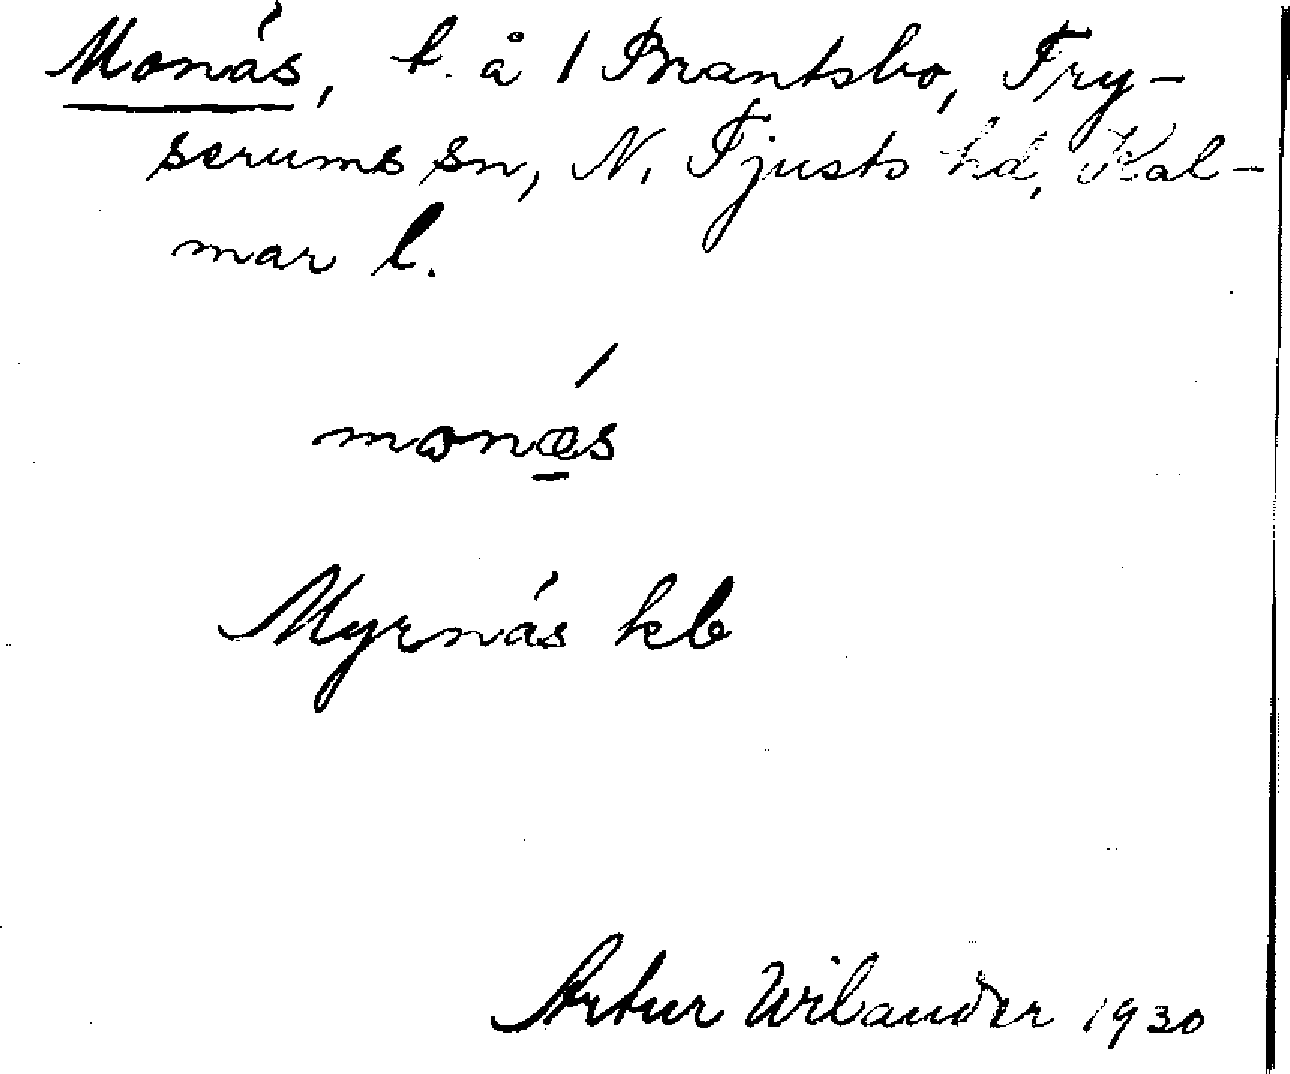 Monäs, t. å 1 Brantsbo, Try-
serums sn, N. Tjusts hd, Kal-
mar l.
monæs
Myrnäs kb
Artur Wilander 1930